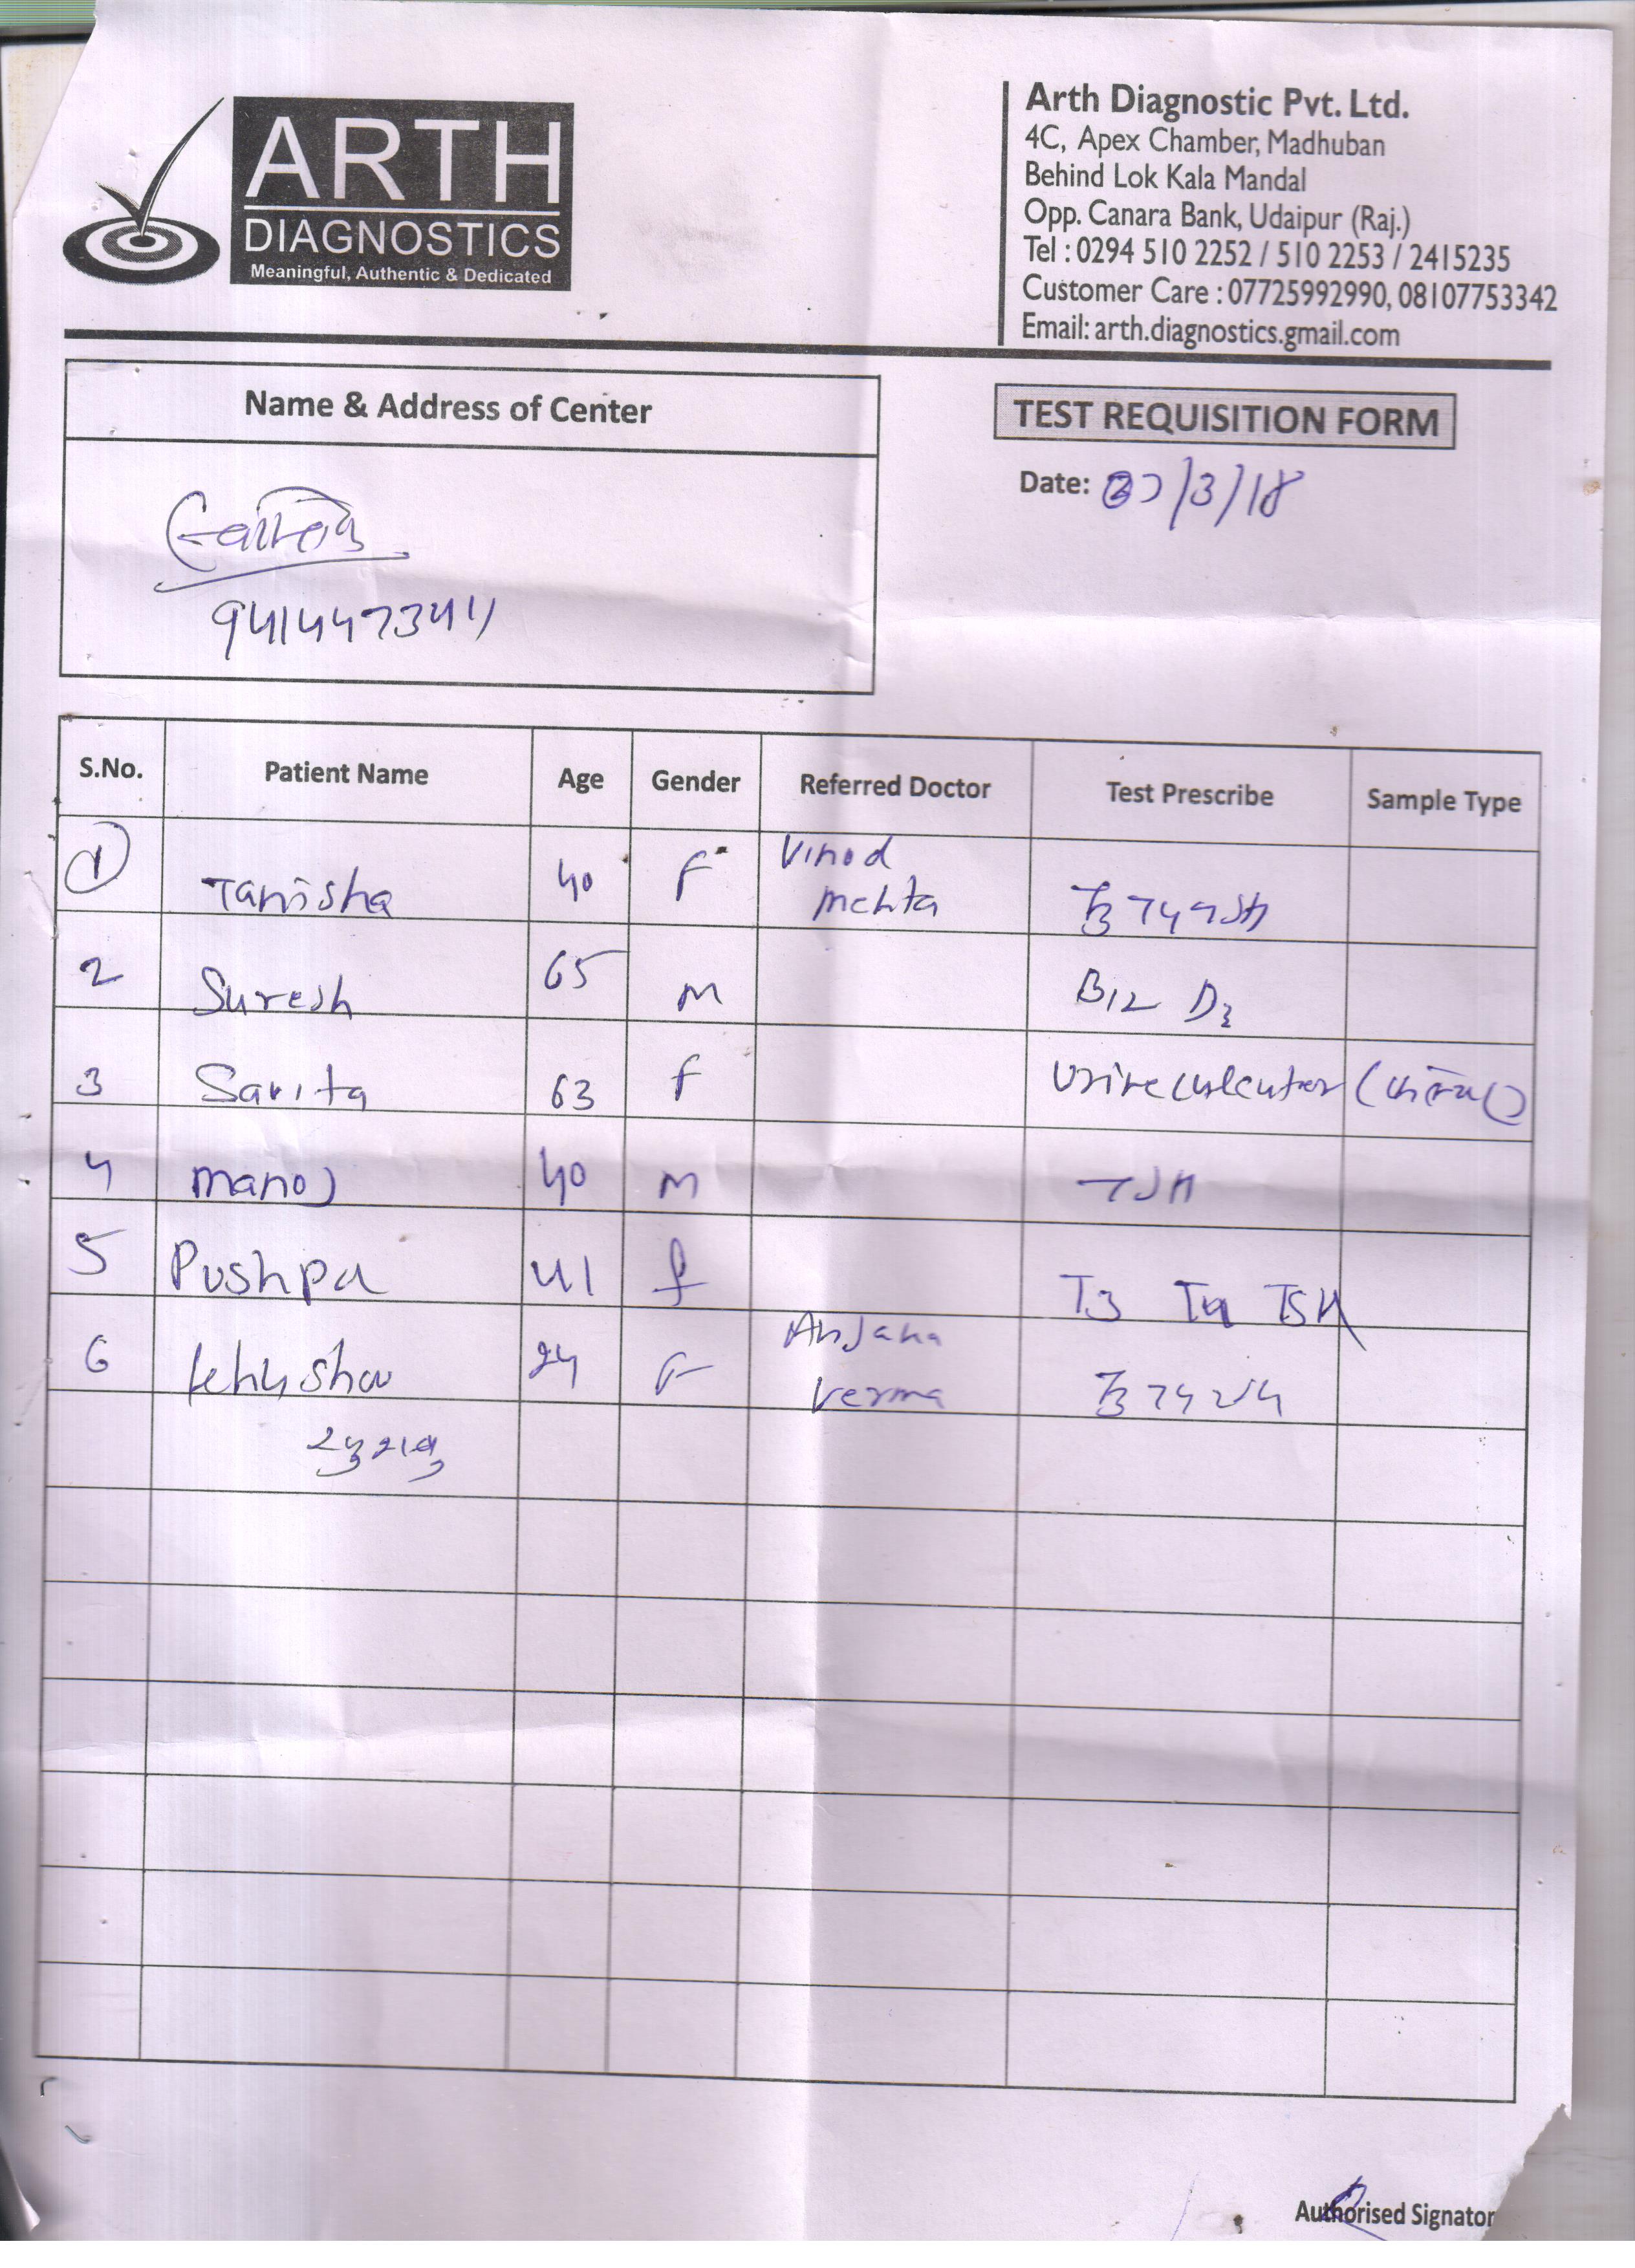 ARTH
DIAGNOSTICS
Meaningful, Authentic & Dedicated
Arth Diagnostic Pvt. Ltd.
4C, Apex Chamber, Madhuban
Behind Lok Kala Mandal
Opp. Canara Bank, Udaipur (Raj.)
Tel : 0294 510 2252 / 510 2253 / 2415235
Customer Care : 07725992990, 08107753342
Email: arth.diagnostics.gmail.com
Name & Address of Center
TEST REQUISITION FORM
Date: /3/18
S.No. Patient Name Age Gender Referred Doctor Test Prescribe Sample Type
1 Tanisha 40 F Vinod Mehta T3 T4 TSH
2 Suresh 65 M B12 D3
3 Sarita 63 F
4 Manoj 40 M TSH
5 Pushpa 41 f T3 T4 TSH
6 24 F Anjana Verma T3 T4 TSH
Authorised Signator